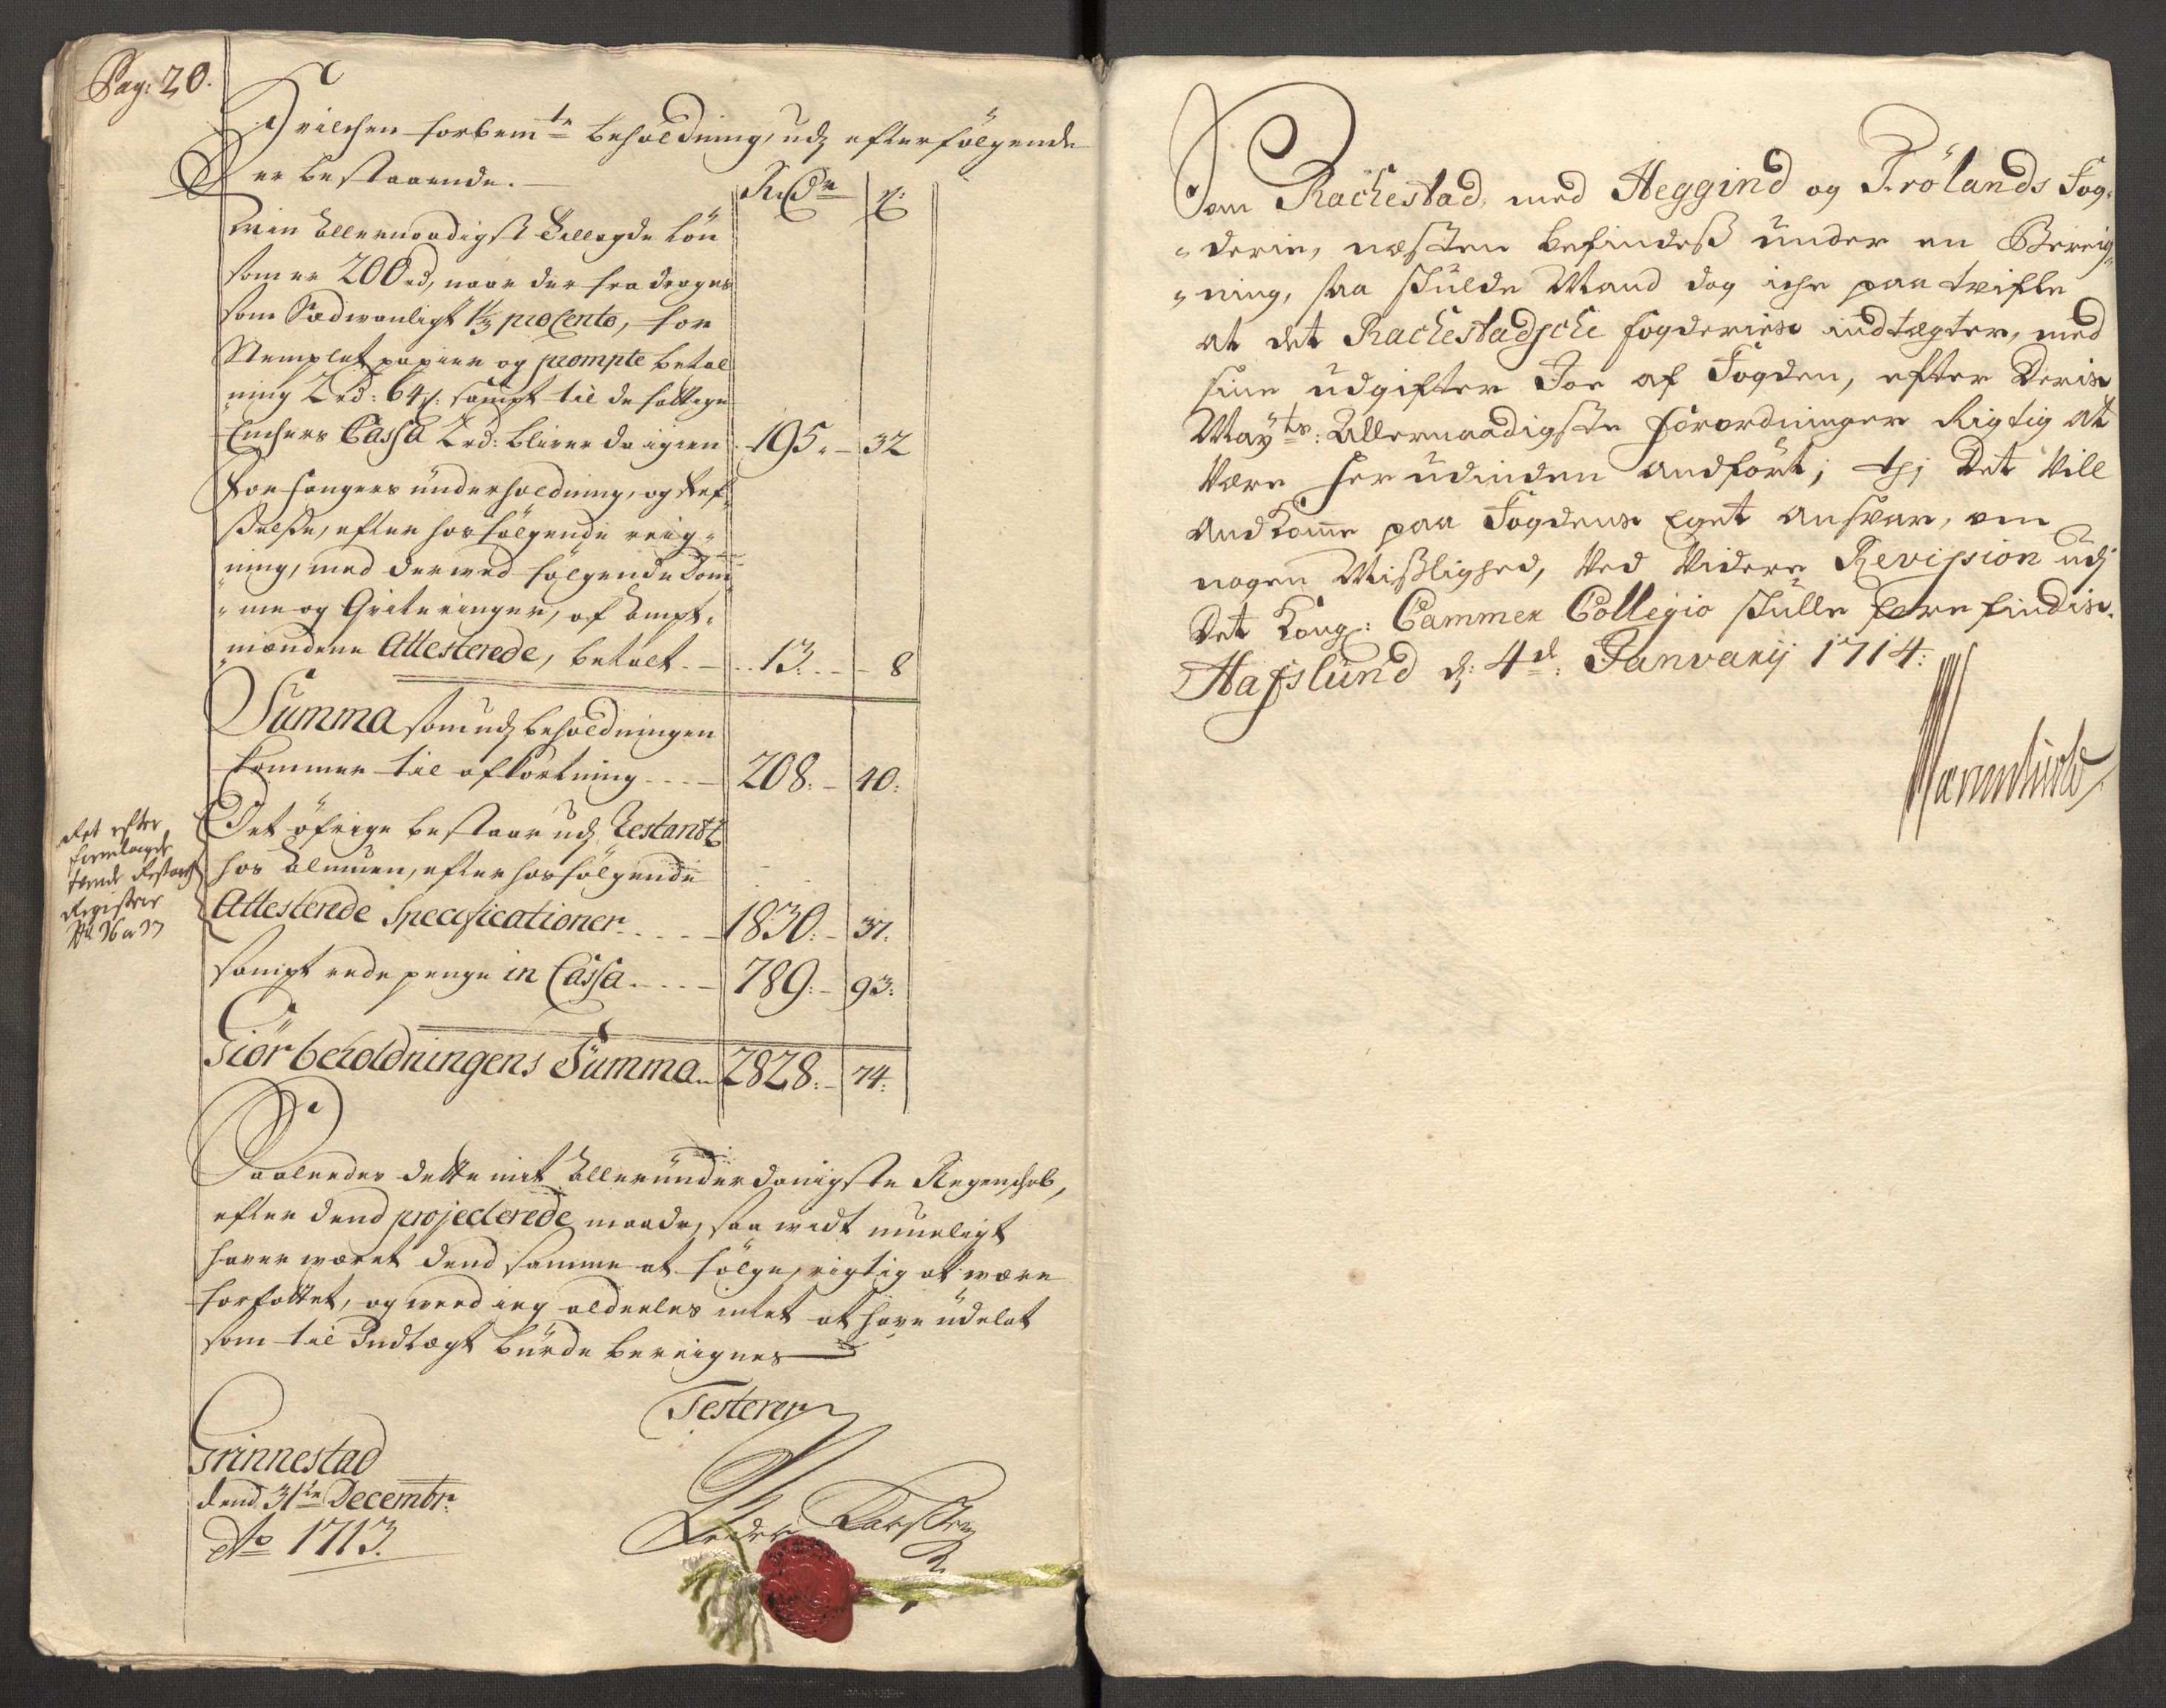 Pag: 20.
Hvilchen forbemte beholdning, udj efterfølgende
er bestaaende.
Rdr ß:
Min Allernaadigst Tillagde Løn
som er 200 rd, naar der fra drages
som Sædvanligt 1⅓ pro Cento, for
Stemplet papiir og prompte betal
ning 2 rd: 64 ß: sampt til de fattige
Enchers Cassa 2 rd: bliver da igien 195. 32
For fangers ünderholdning, og Ref-
selse, efter hosfølgende reig-
ning, med derved følgende Dom-
me og Qviteringer, af Ampt-
mændene Attesterede, betalt 13. 8
Summa som udj beholdningen
kommer til afkortning 208. 40.
Det øfrige bestaar udj Restantz
hos Almuen, efter hosfølgende
Attesterede Specificationer 1830. 37.
sampt rede penge in Cassa 789. 93.
Giør beholdningens Summa 2828. 74.
det efter
Restantz
Register
No 26 a 27
Saaleedes dette mit Alleründerdanigste Regenschab,
efter dend projecterede maade, saa widt mueligt
hawer wæret dend samme at følge, rigtig at wære
forfattet, og weed ieg aldeeles intet at have üdelat
som til Indtægt bürde bereignes
Testerer
Grinnestad
dend 31te Decembr:
Ao 1713.
Peder Larssen
Som Rachestad, med Heggind og Frölands Fog-
derie, næsten befindeß ünder en Bereig-
ning, saa skulde Mand dog iche paa tvifle
at det Rachestadsche fogderies indtægter, med
sine üdgifter Joe af Fogden, efter Deris
Mayts: Allernaadigste Forordninger Rigtig at
Være her üdinden andført; thj Det Vill
andkomme paa Fogdens Eget ansvar, om
nogen Mißlighed, Ved Videre Revision udj
Det Kong: Cammer Collegio skülle Ere findis.
Hafslünd d: 4d: Janvarij 1714: